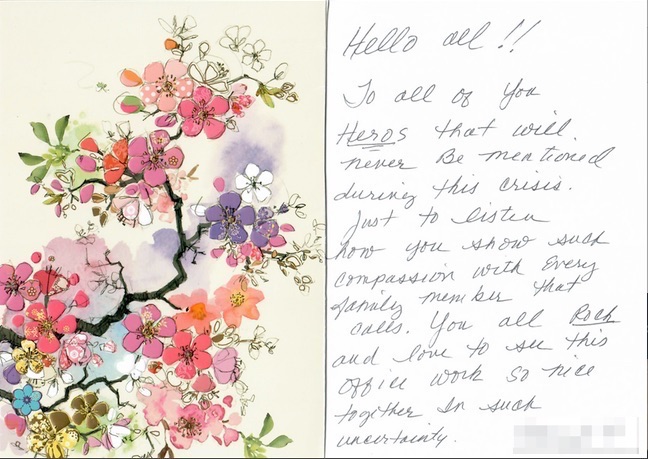 Hello all!!
To all of you
Heros that will
never Be mentioned
during this crisis.
Just to listen
how you show such
compassion with Every
family member that
calls. You all Rock
and love to see this
office work so nice
together In such
uncertainty.